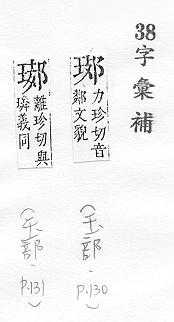 38字彙補
力珍切音
鄰文貌
(玉部, p.130)
離珍切與
璘義同
(玉部, p.131)